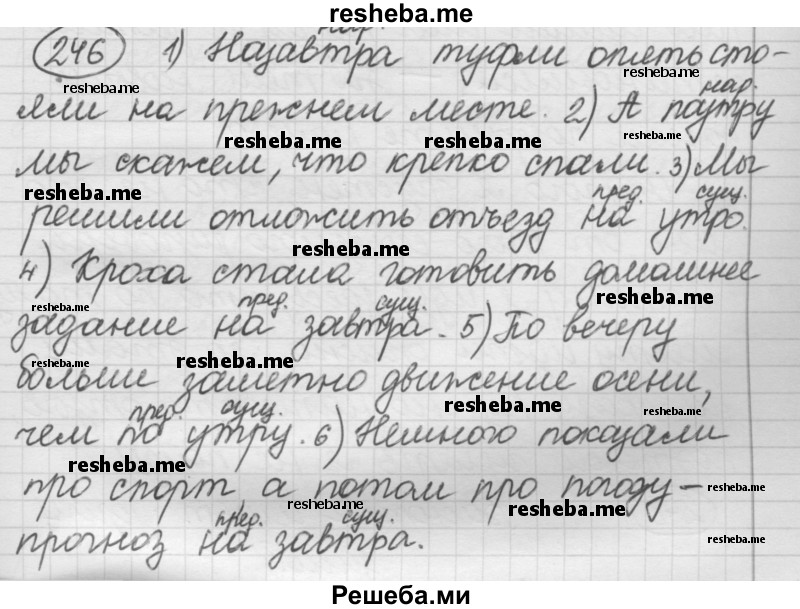 resheba.me
нар.
246 1) Назавтра туфли опять сто-
resheba.me resheba.me
яли на прежнем месте. 2) А поутру
нар.
resheba.me resheba.me resheba.me
мы скажем, что крепко спали. 3) Мы
resheba.me пред. сущ.
решили отложить отъезд на утро.
resheba.me
4) Кроха стала готовить домашнее
resheba.me пред. сущ. resheba.me
задание на завтра. 5) По вечеру
resheba.me resheba.me resheba.me
больше заметно движение осени,
пред. сущ. resheba.me resheba.me
чем по утру. 6) Немного показали
resheba.me resheba.me
про спорт а потом про погоду –
resheba.me resheba.me resheba.me
пред. сущ.
прогноз на завтра.
resheba.me
Решеба.ми